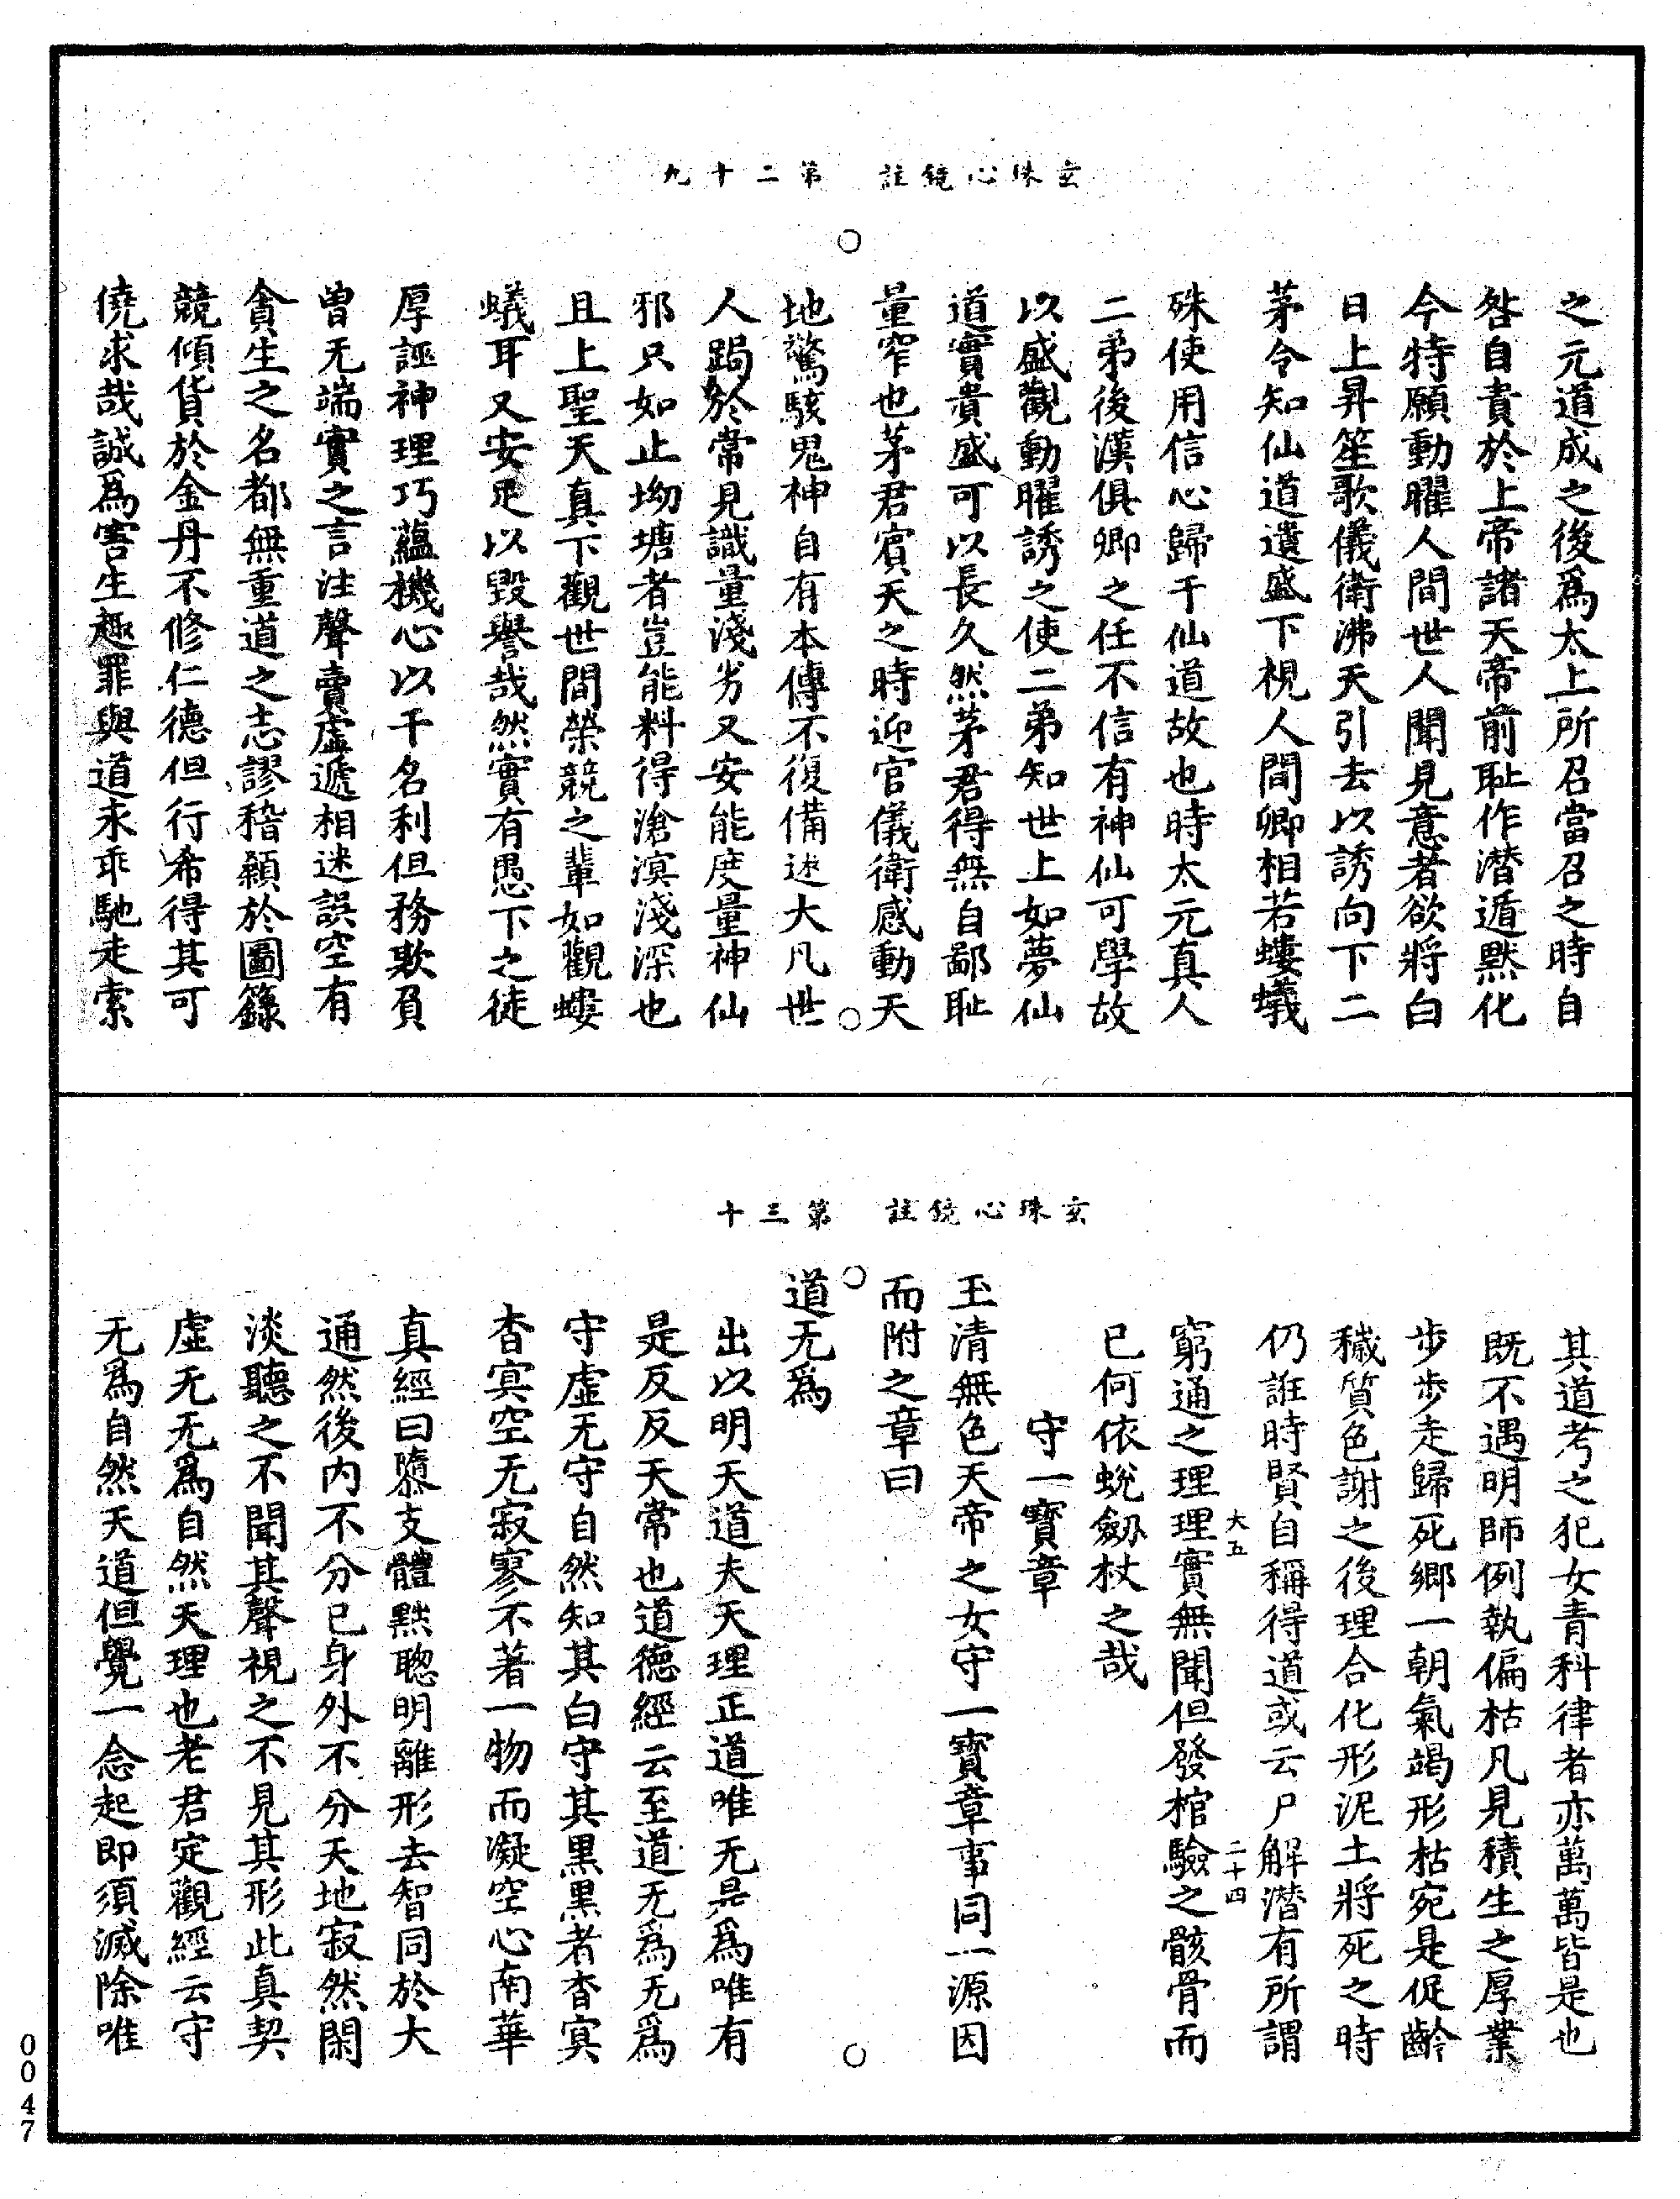 玄珠心鏡註　第二十九
之元道成之後爲太上所召當召之時自
咎自責於上帝諸天帝前耻作潜遁黙化
今特願動曜人間世人聞見意者欲將白
日上昇笙歌儀衛沸天引去以誘向下二
茅令知仙道遺盛下視人間卿相若螻蟻
殊使用信心歸于仙道故也時太元真人
二弟後漢俱卿之任不信有神仙可學故
以盛觀動曜誘之使二弟知世上如夢仙
道實貴盛可以長久然茅君得無自鄙耻
量窄也茅君賓天之時迎官儀衛感動天
地驚駭鬼神自有本傳不復備述大凡世
人跼於常見識量淺劣又安能度量神仙
邪只如止坳塘者豈能料得滄溟淺深也
且上聖天真下觀世間榮競之輩如觀螻
蟻耳又安足以毀譽哉然實有愚下之徒
厚誣神理巧蘊機心以干名利但務欺負
曾无端實之言注聲賣虛遞相迷誤空有
貪生之名都無重道之志謬稽顙於圖籙
競傾貨於金丹不修仁德但行希得其可
僥求哉誠爲害生趣罪與道永乖馳走索
玄珠心鏡註　第三十
其道考之犯女青科律者亦萬萬皆是也
既不遇明師例執偏枯凡見積生之厚業
步步走歸死鄉一朝氣竭形枯宛是促齡
穢質色謝之後理合化形泥土將死之時
仍誑時賢自稱得道或云尸解潜有所謂
大五　二十四
窮通之理理實無聞但發棺驗之骸骨而
已何依蛻劒杖之哉
守一寶章
玉清無色天帝之女守一寶章事同一源因
而附之章曰
道无爲
出以明天道夫天理正道唯无是爲唯有
是反反天常也道德經云至道无爲无爲
守虛无守自然知其白守其黑黑者杳冥
杳冥空无寂寥不著一物而凝空心南華
真經曰隳支體黜聰明離形去智同於大
通然後内不分已身外不分天地寂然閑
淡聽之不聞其聲視之不見其形此真契
虛无无爲自然天理也老君定觀經云守
无爲自然天道但覺一念起即須滅除唯
0047